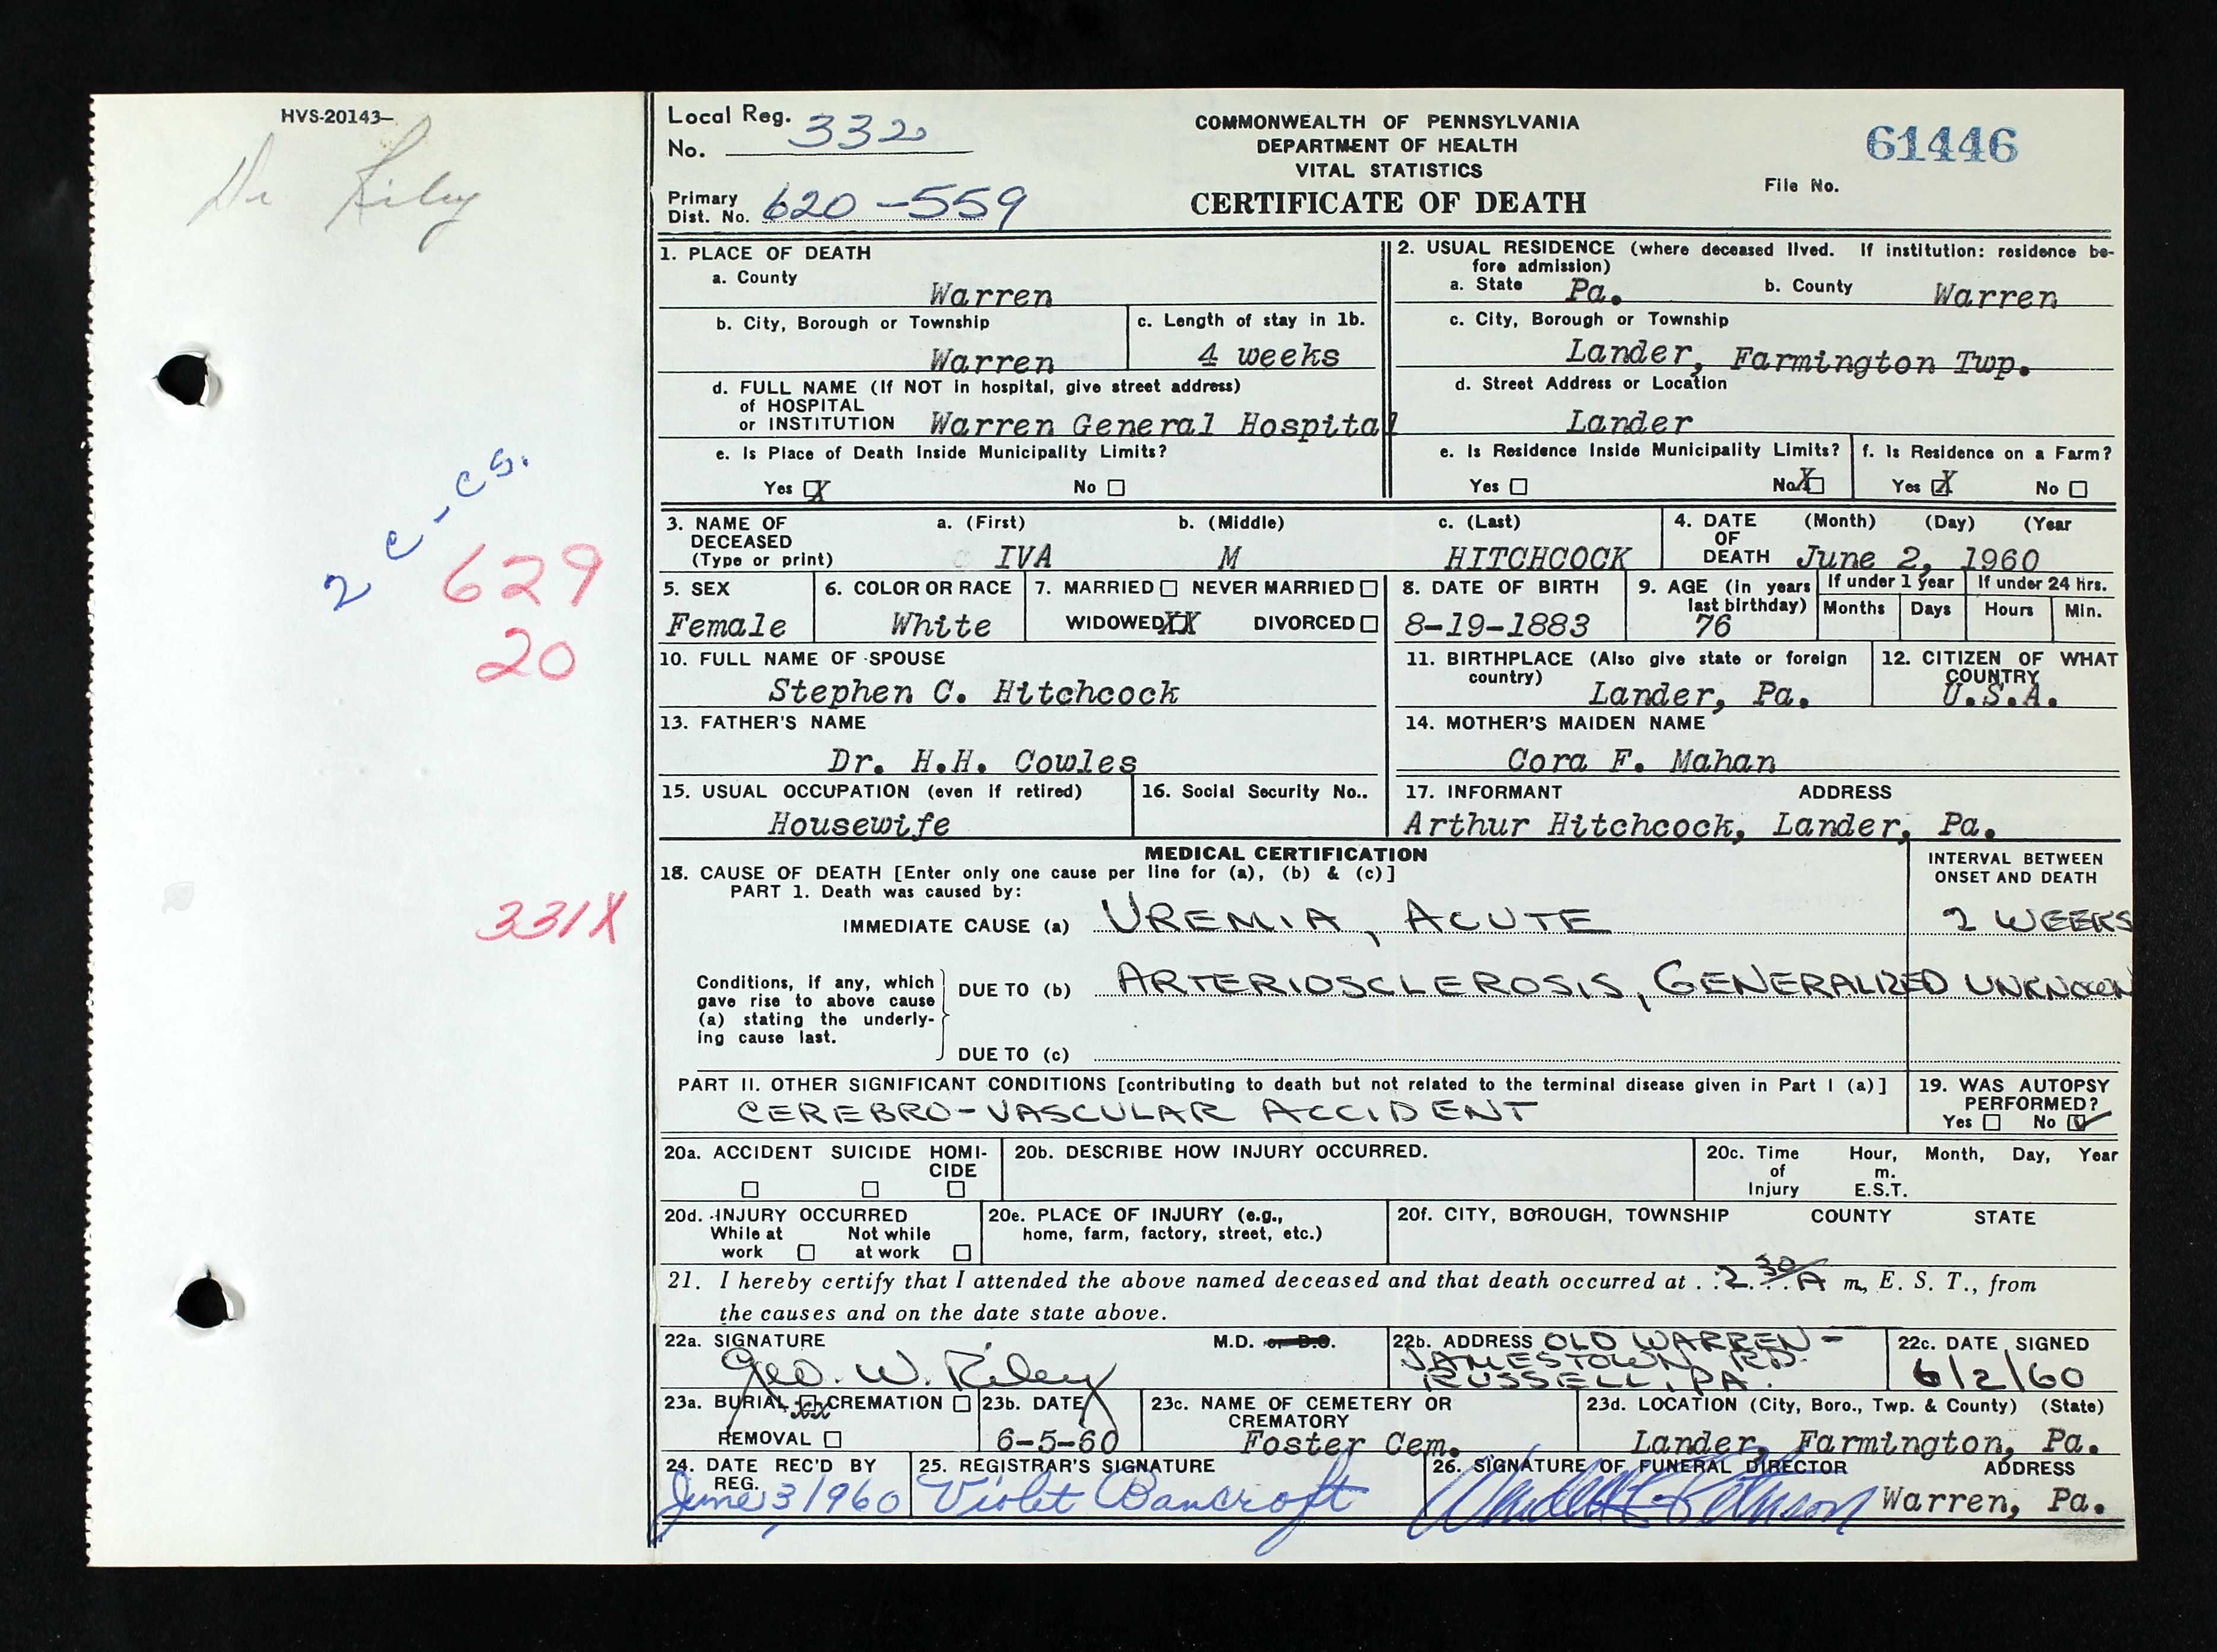 HVS-20143-
Dr Riley
2 c-cs.
629
20
331X
Local Reg. No. 332
Primary Dist. No. 620-559
COMMONWEALTH OF PENNSYLVANIA
DEPARTMENT OF HEALTH
VITAL STATISTICS
CERTIFICATE OF DEATH
61446
File No.
1. PLACE OF DEATH
a. County
Warren
b. City, Borough or Township
Warren
c. Length of stay in 1b.
4 weeks
d. FULL NAME (If NOT in hospital, give street address)
of HOSPITAL
or INSTITUTION Warren General Hospital
e. Is Place of Death Inside Municipality Limits?
Yes X No
2. USUAL RESIDENCE (where deceased lived. If institution: residence be-
fore admission)
a. State Pa. b. County Warren
c. City, Borough or Township
Lander, Farmington Twp.
d. Street Address or Location
Lander
e. Is Residence Inside Municipality Limits?
Yes No X
f. Is Residence on a Farm?
Yes X No
3. NAME OF DECEASED (Type or print)
a. (First) b. (Middle) c. (Last)
IVA M HITCHCOCK
4. DATE OF DEATH (Month) (Day) (Year
June 2, 1960
5. SEX
Female
6. COLOR OR RACE
White
7. MARRIED NEVER MARRIED
WIDOWED XX DIVORCED
8. DATE OF BIRTH
8-19-1883
9. AGE (in years last birthday)
76
If under 1 year
Months Days
If under 24 hrs.
Hours Min.
10. FULL NAME OF SPOUSE
Stephen C. Hitchcock
11. BIRTHPLACE (Also give state or foreign country)
Lander, Pa.
12. CITIZEN OF WHAT COUNTRY
U.S.A.
13. FATHER'S NAME
Dr. H.H. Cowles
14. MOTHER'S MAIDEN NAME
Cora F. Mahan
15. USUAL OCCUPATION (even if retired)
Housewife
16. Social Security No..
17. INFORMANT ADDRESS
Arthur Hitchcock, Lander, Pa.
MEDICAL CERTIFICATION
18. CAUSE OF DEATH [Enter only one cause per line for (a), (b) & (c)]
PART 1. Death was caused by:
INTERVAL BETWEEN
ONSET AND DEATH
IMMEDIATE CAUSE (a) UREMIA, ACUTE 2 WEEKS
Conditions, if any, which
gave rise to above cause
(a) stating the underly-
ing cause last.
DUE TO (b) ARTERIOSCLEROSIS, GENERALIZED UNKNOWN
DUE TO (c)
PART II. OTHER SIGNIFICANT CONDITIONS [contributing to death but not related to the terminal disease given in Part I (a)]
CEREBRO-VASCULAR ACCIDENT
19. WAS AUTOPSY
PERFORMED?
Yes No ✓
20a. ACCIDENT SUICIDE HOMI-
CIDE
20b. DESCRIBE HOW INJURY OCCURRED.
20c. Time of Injury Hour, m. E.S.T. Month, Day, Year
20d. INJURY OCCURRED
While at work Not while at work
20e. PLACE OF INJURY (e.g.,
home, farm, factory, street, etc.)
20f. CITY, BOROUGH, TOWNSHIP COUNTY STATE
21. I hereby certify that I attended the above named deceased and that death occurred at 2 30 A m, E. S. T., from
the causes and on the date state above.
22a. SIGNATURE M.D. or D.O.
Geo. W. Riley
22b. ADDRESS OLD WARREN-
JAMESTOWN RD.
RUSSELL, PA.
22c. DATE SIGNED
6/2/60
23a. BURIAL xx CREMATION
REMOVAL
23b. DATE
6-5-60
23c. NAME OF CEMETERY OR
CREMATORY
Foster Cem.
23d. LOCATION (City, Boro., Twp. & County) (State)
Lander, Farmington, Pa.
24. DATE REC'D BY REG.
June 3, 1960
25. REGISTRAR'S SIGNATURE
Violet Bancroft
26. SIGNATURE OF FUNERAL DIRECTOR ADDRESS
Peterson Warren, Pa.